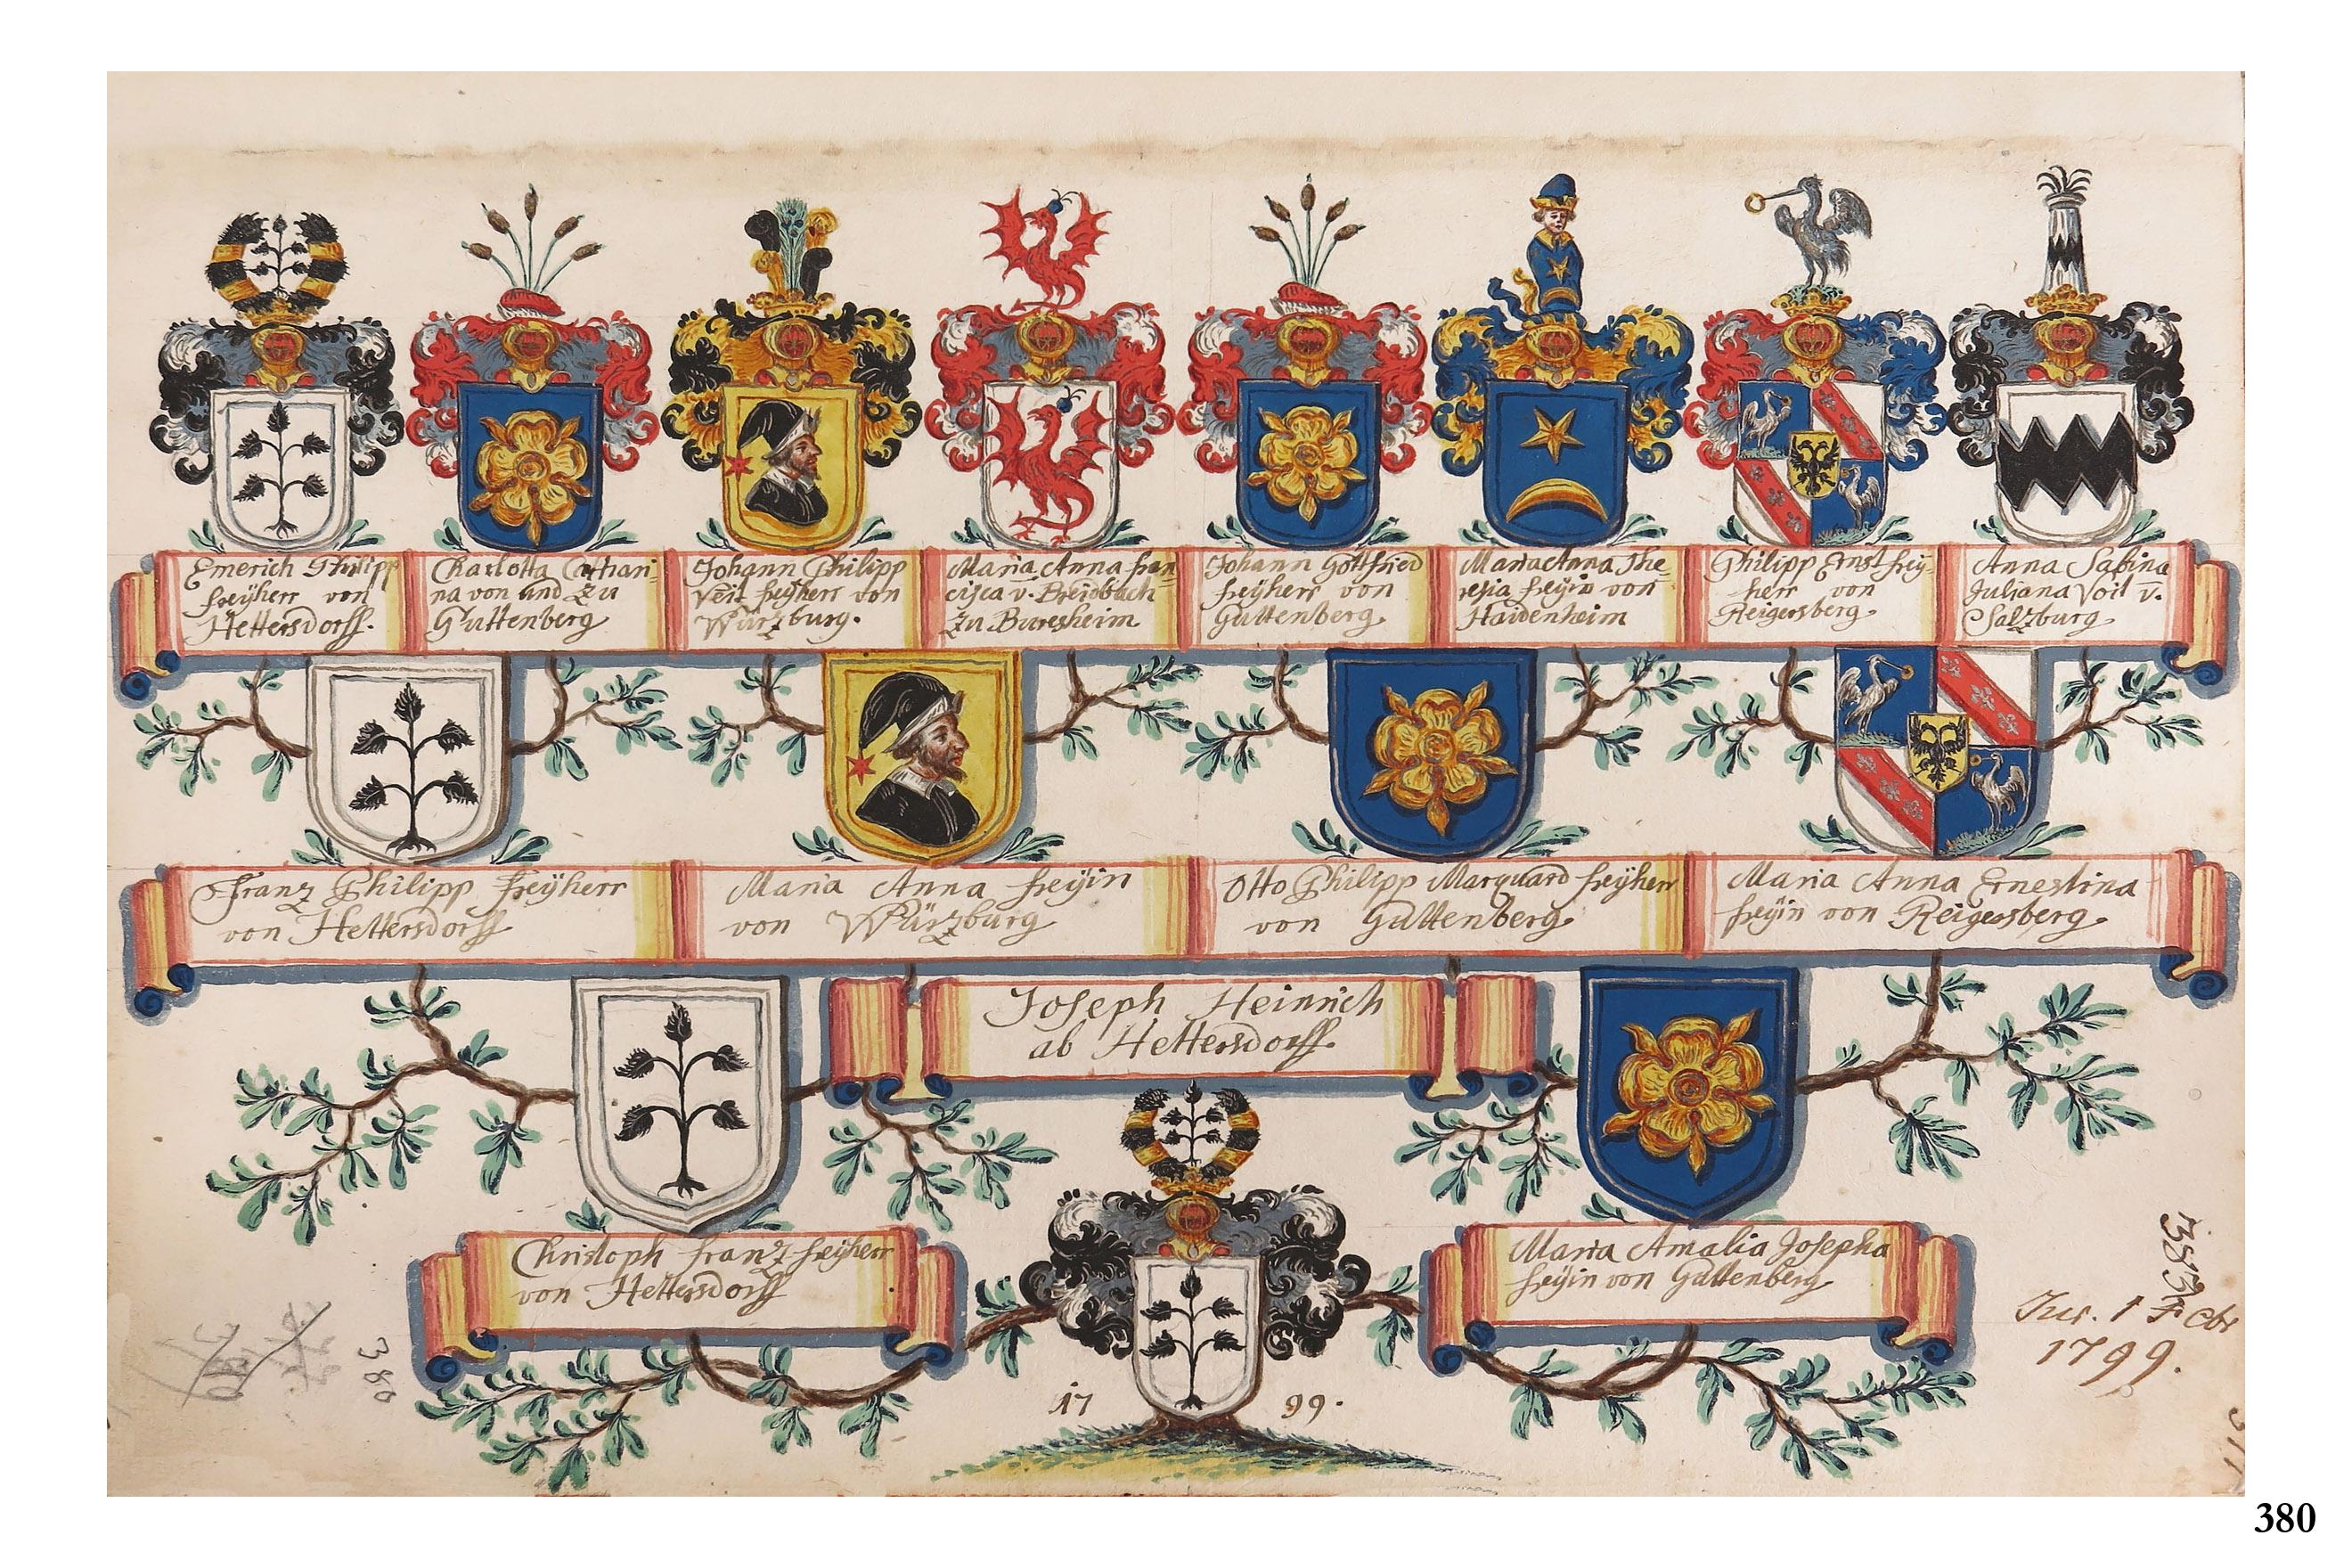 Emerich Philipp
freÿherr von
Hettersdorff.
Charlotta Cathari-
na von und zu
Guttenberg
Johann Philipp
Veit freÿherr von
Würzburg.
Maria Anna fran
cisca v. Breidbach
zu Buresheim
Johann Gottfried
freÿherr von
Guttenberg
Maria Anna The
resia freÿin von
Haidenheim
Philipp Ernst freÿ-
herr von
Reigersberg
Anna Sabina
Juliana Voit v.
Salzburg
Franz Philipp freÿherr
von Hettersdorff
Maria Anna freÿin
von Würzburg
Otto Philipp Marquard freÿherr
von Guttenberg
Maria Anna Ernestina
freÿin von Reigersberg
Joseph Heinrich
ab Hettersdorff.
Christoph franz freÿherr
von Hettersdorff
Maria Amalia Josepha
freÿin von Guttenberg
17 99.
380
Jur. 1 Febr
1799.
380